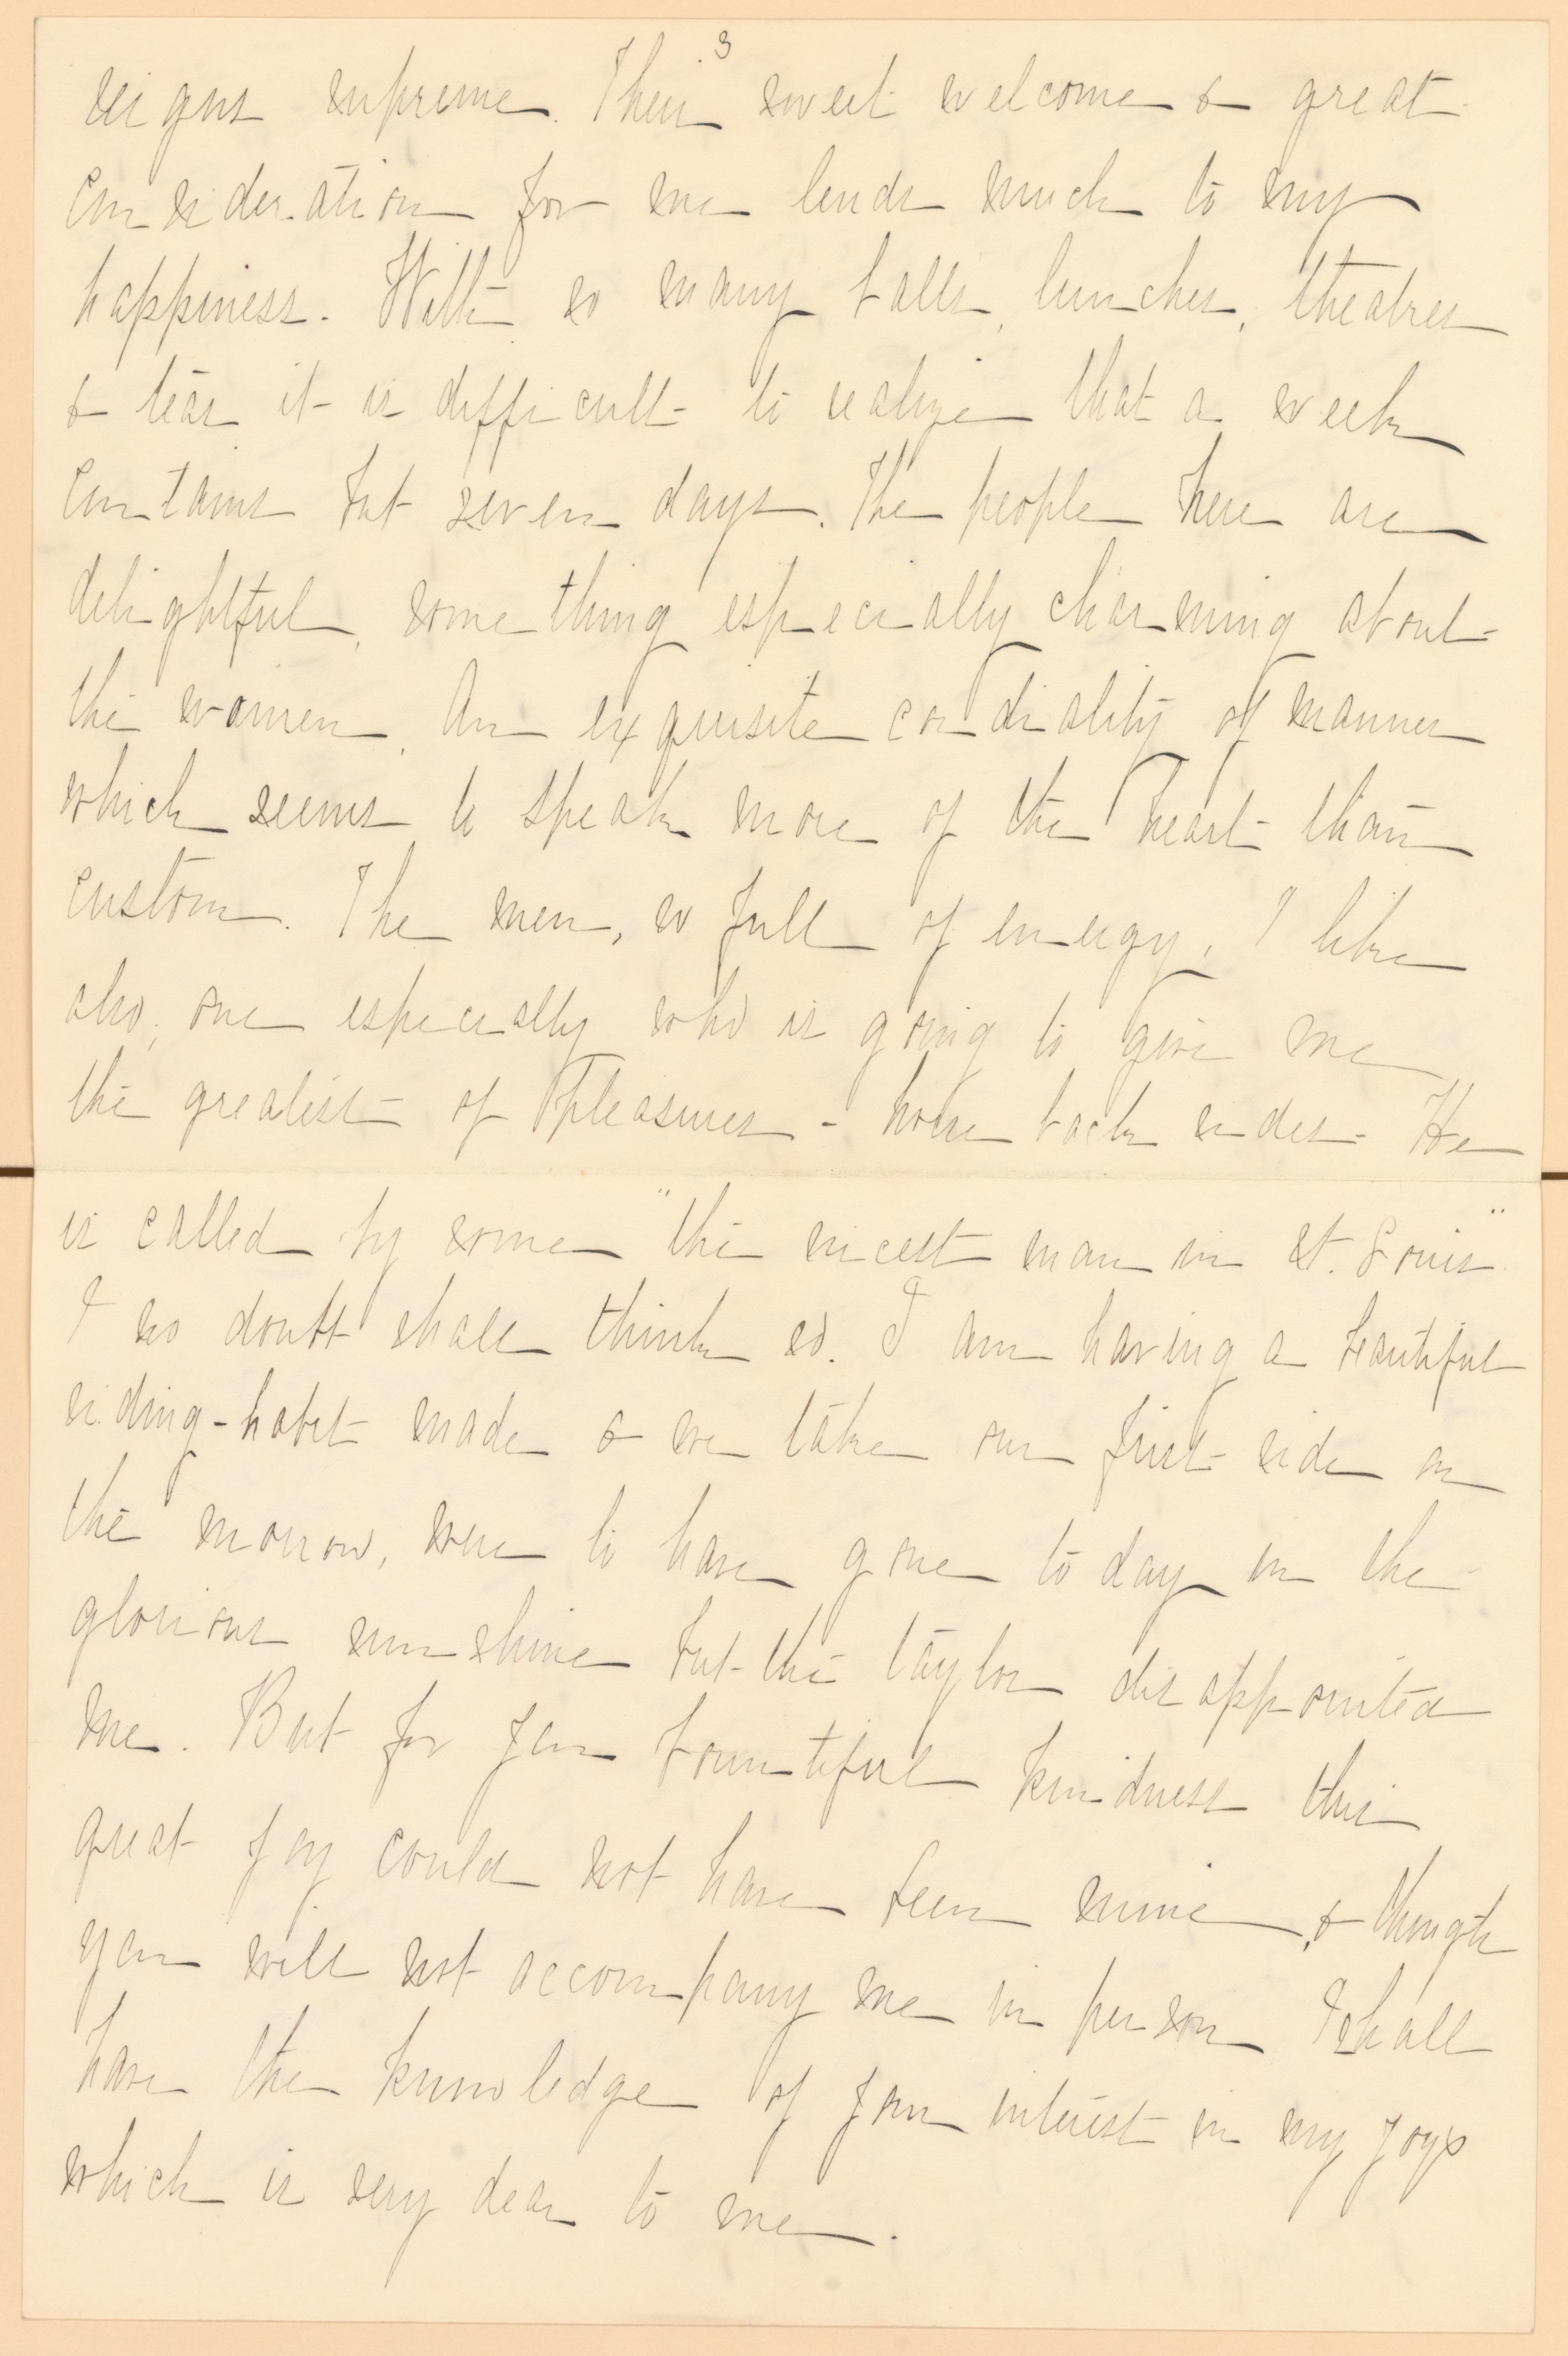 3
reigns supreme. Their sweet welcome & great
consideration for me lends much to my
happiness. With so many balls, lunches, theatres
& teas it is difficult to realize that a week
contains but seven days. The people here are
delightful, something especially charming about
the women. An exquisite cordiality of manner
which seems to speak more of the heart than
custom. The men, so full of energy, I like
also, one especially who is going to give me
the greatest of pleasures - horse back rides. He
is called by some "the nicest man in St. Louis"
I no doubt shall think so. I am having a beautiful
riding-habit made & we take our first ride on
the morrow, were to have gone to day in the
glorious sunshine but the taylor disappointed
me. But for your bountiful kindness this
great joy could not have been mine, & though
you will not accompany me in person I shall
have the knowledge of your interest in my joys
which is very dear to me.